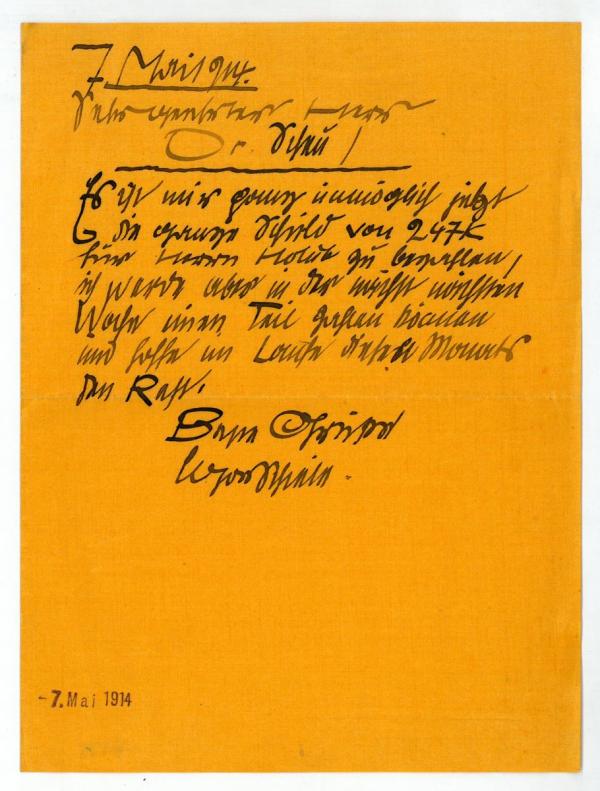 7. Mai 914.
Sehr geehrter Herr
Dr. Scheu!
Es ist mir ganz unmöglich jetzt
die ganze Schuld von 247K
für Herrn Holub zu bezahlen,
ich werde aber in der nächst nächsten
Woche einen Teil zahlen können
und hoffe im Laufe dieses Monats
den Rest.
Beste Grüsse
Egon Schiele.
-7. Mai 1914